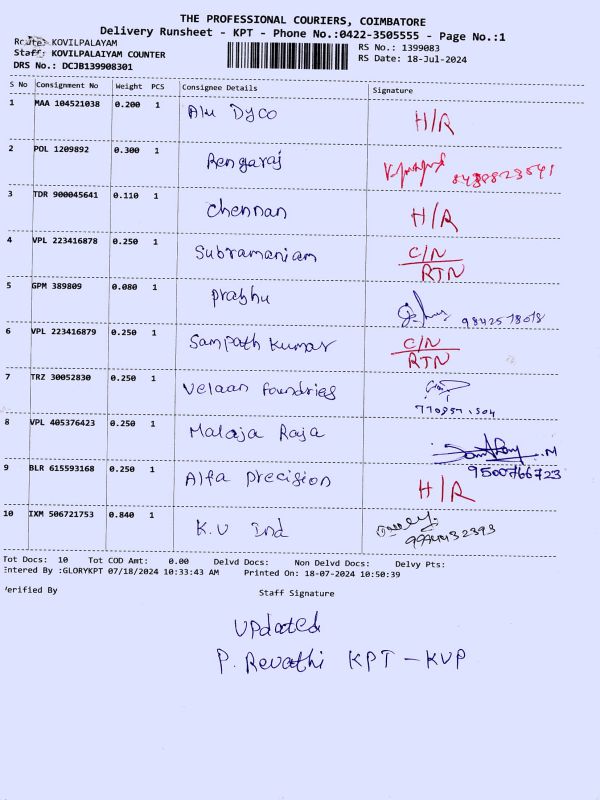 THE PROFESSIONAL COURIERS, COIMBATORE
Delivery Runsheet - KPT - Phone No.:0422-3505555 - Page No.:1
Route: KOVILPALAYAM RS No.: 1399083
Staff: KOVILPALAIYAM COUNTER RS Date: 18-Jul-2024
DRS No.: DCJB139908301
S No Consignment No Weight PCS Consignee Details Signature
1 MAA 104521038 0.200 1 Alu Dyco H/R
2 POL 1209892 0.300 1 Rengaraj
3 TDR 900045641 0.110 1 Chennan H/R
4 VPL 223416878 0.250 1 Subramaniam C/N
RTN
5 GPM 389809 0.080 1 Prabhu
6 VPL 223416879 0.250 1 Sampath Kumar C/N
RTN
7 TRZ 30052830 0.250 1 Velaan Foundries
8 VPL 405376423 0.250 1 Malaja Raja
9500766723
9 BLR 615593168 0.250 1 Alfa Precision H/R
10 IXM 506721753 0.840 1 K.U Ind
Tot Docs: 10 Tot COD Amt: 0.00 Delvd Docs: Non Delvd Docs: Delvy Pts:
Entered By :GLORYKPT 07/18/2024 10:33:43 AM Printed On: 18-07-2024 10:50:39
Verified By Staff Signature
Updated
P. Revathi KPT - KVP